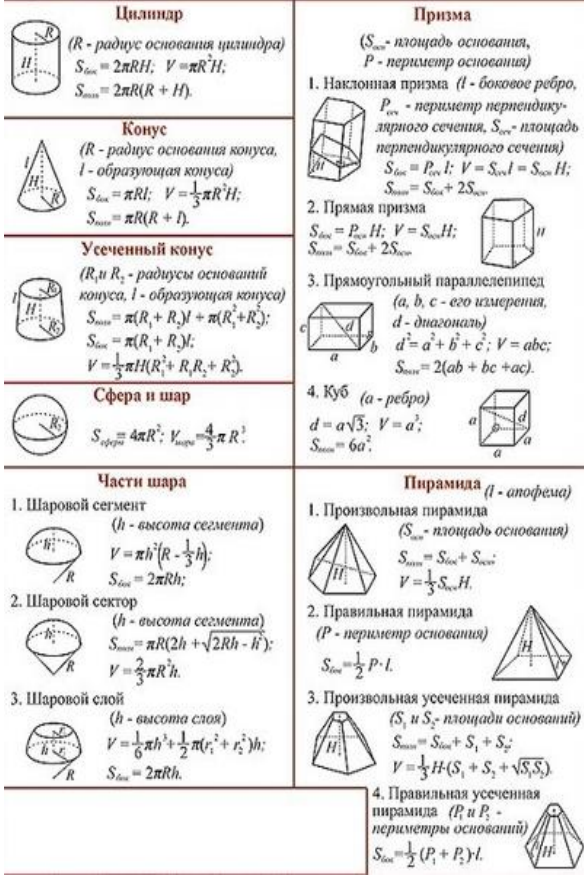 Цилиндр
(R - радиус основания цилиндра)
Sбок = 2πRH; V = πR²H;
Sполн = 2πR(R + H).
R
H
Конус
(R - радиус основания конуса,
l - образующая конуса)
Sбок = πRl; V = 1/3 πR²H;
Sполн = πR(R + l).
l
H
R
Усеченный конус
(R₁ и R₂ - радиусы оснований
конуса, l - образующая конуса)
Sполн = π(R₁ + R₂)l + π(R₁² + R₂²);
Sбок = π(R₁ + R₂)l;
V = 1/3 πH(R₁² + R₁R₂ + R₂²).
l
H
R₁
R₂
Сфера и шар
Sсфера = 4πR²; Vшара = 4/3 πR³.
Части шара
1. Шаровой сегмент
(h - высота сегмента)
V = πh²(R - 1/3 h);
Sбок = 2πRh;
h
R
2. Шаровой сектор
(h - высота сегмента)
Sполн = πR(2h + √2Rh - h²);
V = 2/3 πR²h.
h
R
3. Шаровой слой
(h - высота слоя)
V = 1/6 πh³ + 1/2 π(r₁² + r₂²)h;
Sбок = 2πRh.
h
R
Призма
(Sосн - площадь основания,
P - периметр основания)
1. Наклонная призма (l - боковое ребро,
Pсеч - периметр перпендику-
лярного сечения, Sсеч - площадь
перпендикулярного сечения)
Sбок = Pсеч l; V = Sсеч l = Sосн H;
Sполн = Sбок + 2Sосн.
H
2. Прямая призма
Sбок = Pосн H; V = Sосн H;
Sполн = Sбок + 2Sосн.
H
3. Прямоугольный параллелепипед
(a, b, c - его измерения,
d - диагональ)
d² = a² + b² + c²; V = abc;
Sполн = 2(ab + bc + ac).
c
d
b
a
4. Куб (a - ребро)
d = a√3; V = a³;
Sполн = 6a².
a
d
a
a
Пирамида (l - апофема)
1. Произвольная пирамида
(Sосн - площадь основания)
Sполн = Sбок + Sосн;
V = 1/3 Sосн H.
H
2. Правильная пирамида
(P - периметр основания)
Sбок = 1/2 P·l.
H
l
3. Произвольная усеченная пирамида
(S₁ и S₂ - площади оснований)
Sполн = Sбок + S₁ + S₂;
V = 1/3 H·(S₁ + S₂ + √S₁S₂).
H
4. Правильная усеченная
пирамида (P₁ и P₂ -
периметры оснований)
Sбок = 1/2 (P₁ + P₂)·l.
l
H